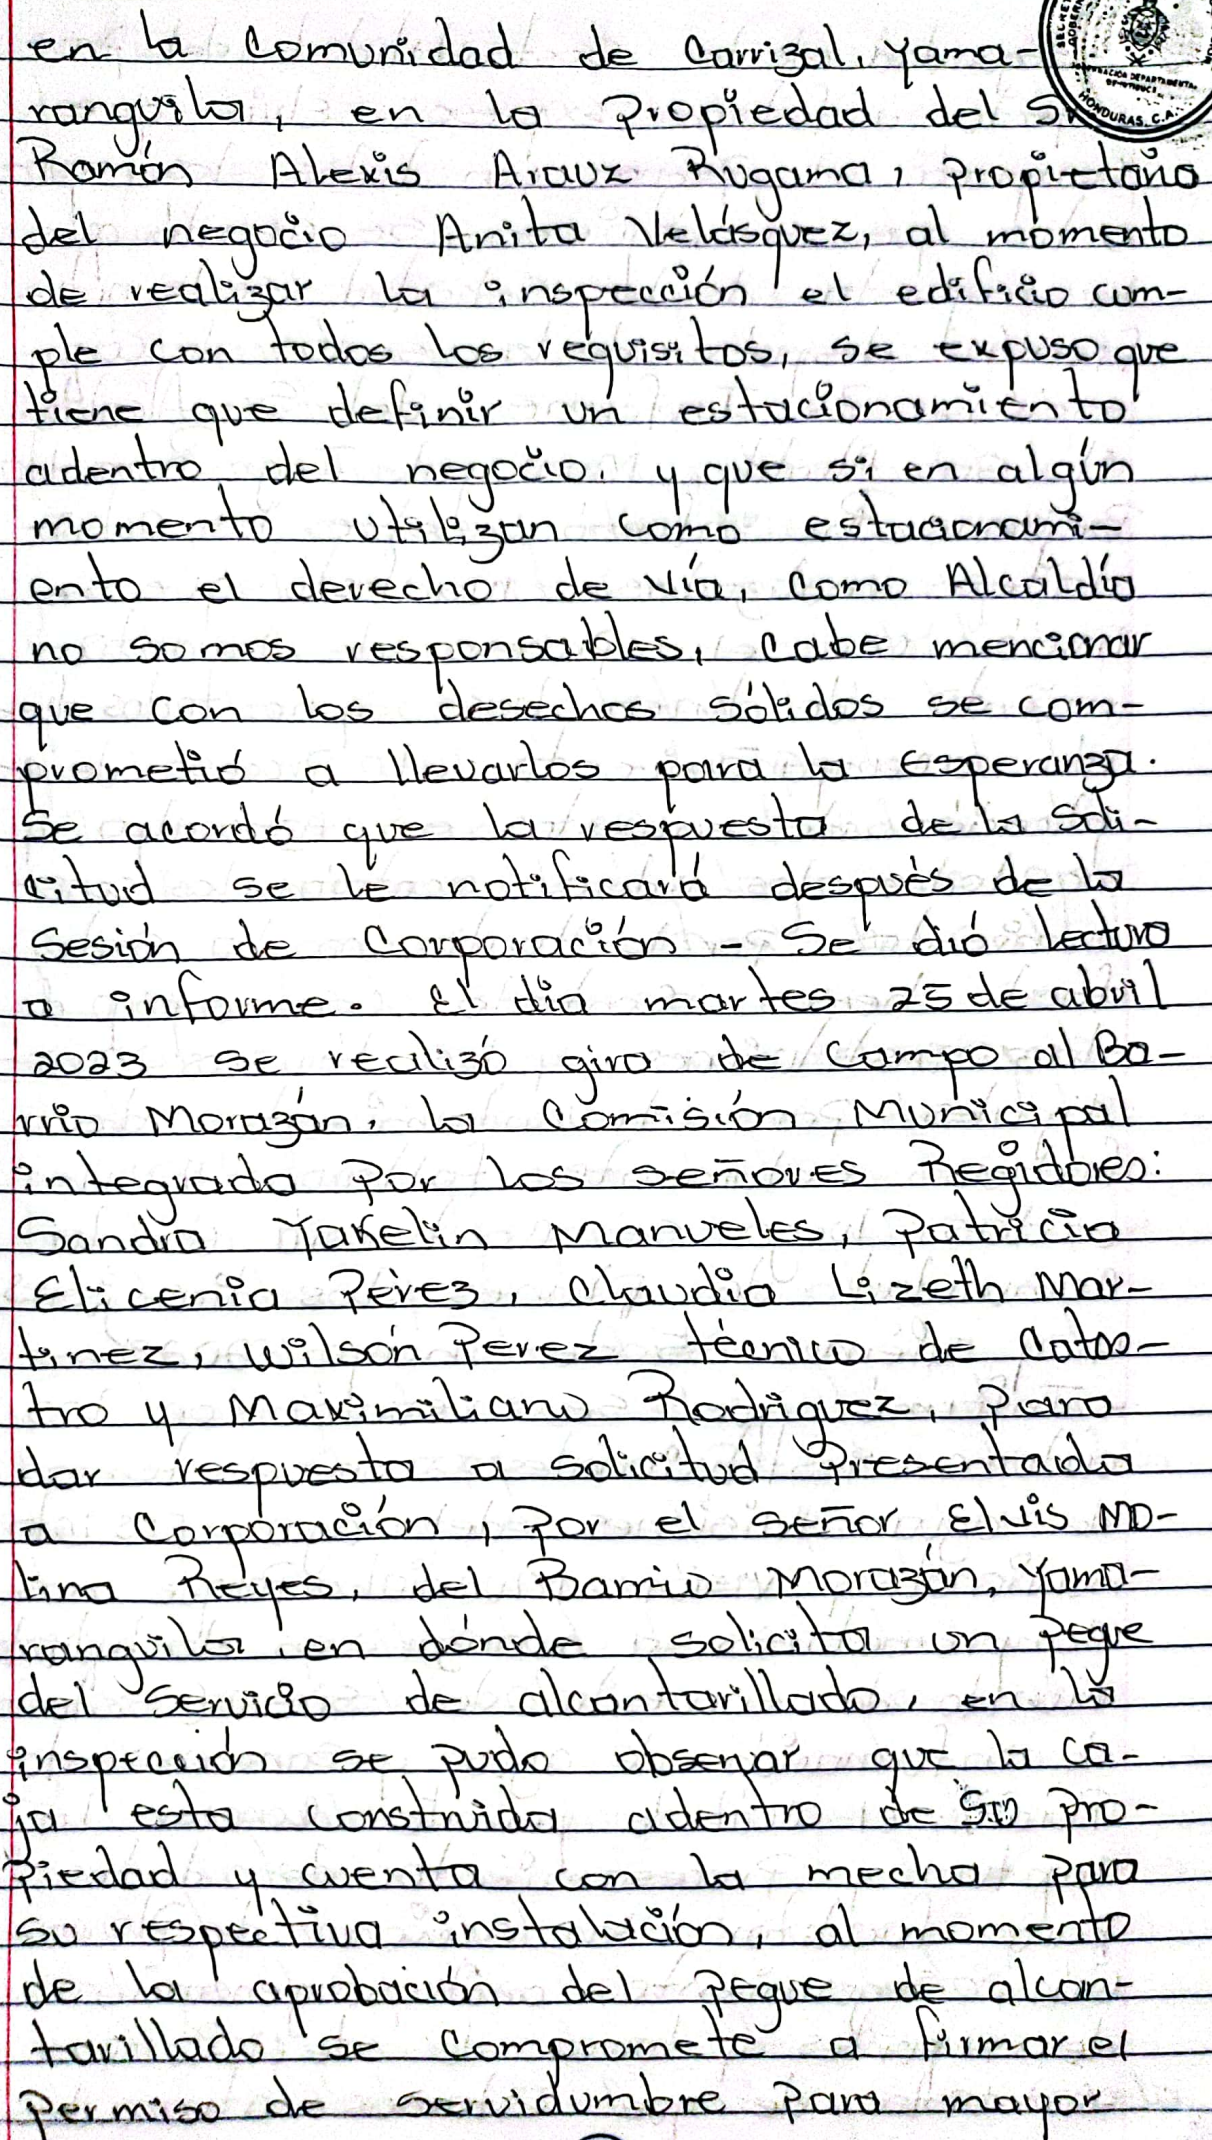 en la Comunidad de Carrizal, Yama-
ranguila, en la Propiedad del Sr
Ramón Alexis Arauz Rugama, propietario
del negocio Anita Velásquez, al momento
de realizar la inspección el edificio cum-
ple con todos los requisitos, se expuso que
tiene que definir un estacionamiento
adentro del negocio, y que si en algún
momento utilizan como estacionami-
ento el derecho de vía, como Alcaldía
no somos responsables, cabe mencionar
que con los desechos sólidos se com-
prometió a llevarlos para la Esperanza.
Se acordó que la respuesta de la Soli-
citud se le notificará después de la
Sesión de Corporación - Se dió lectura
a informe. El dia martes 25 de abril
2023 se realizó gira de Campo al Ba-
rrio Morazán, la Comisión Municipal
integrada Por los señores Regidores:
Sandra Yakelin Manueles, Patricia
Elicenia Pérez, Claudia Lizeth Mar-
tinez, Wilson Perez técnico de Catas-
tro y Maximiliano Rodriguez, Para
dar respuesta a solicitud Presentada
a Corporación, Por el señor Elvis Mo-
lina Reyes, del Barrio Morazán, Yama-
ranguila en dónde solicita un Pegue
del Servicio de alcantarillado, en la
inspección se pudo observar que la ca-
ja esta construida adentro de su Pro-
piedad y cuenta con la mecha para
su respectiva instalación, al momento
de la aprobación del Pegue de alcan-
tarillado se compromete a firmar el
Permiso de servidumbre Para mayor
HONDURAS, C.A.